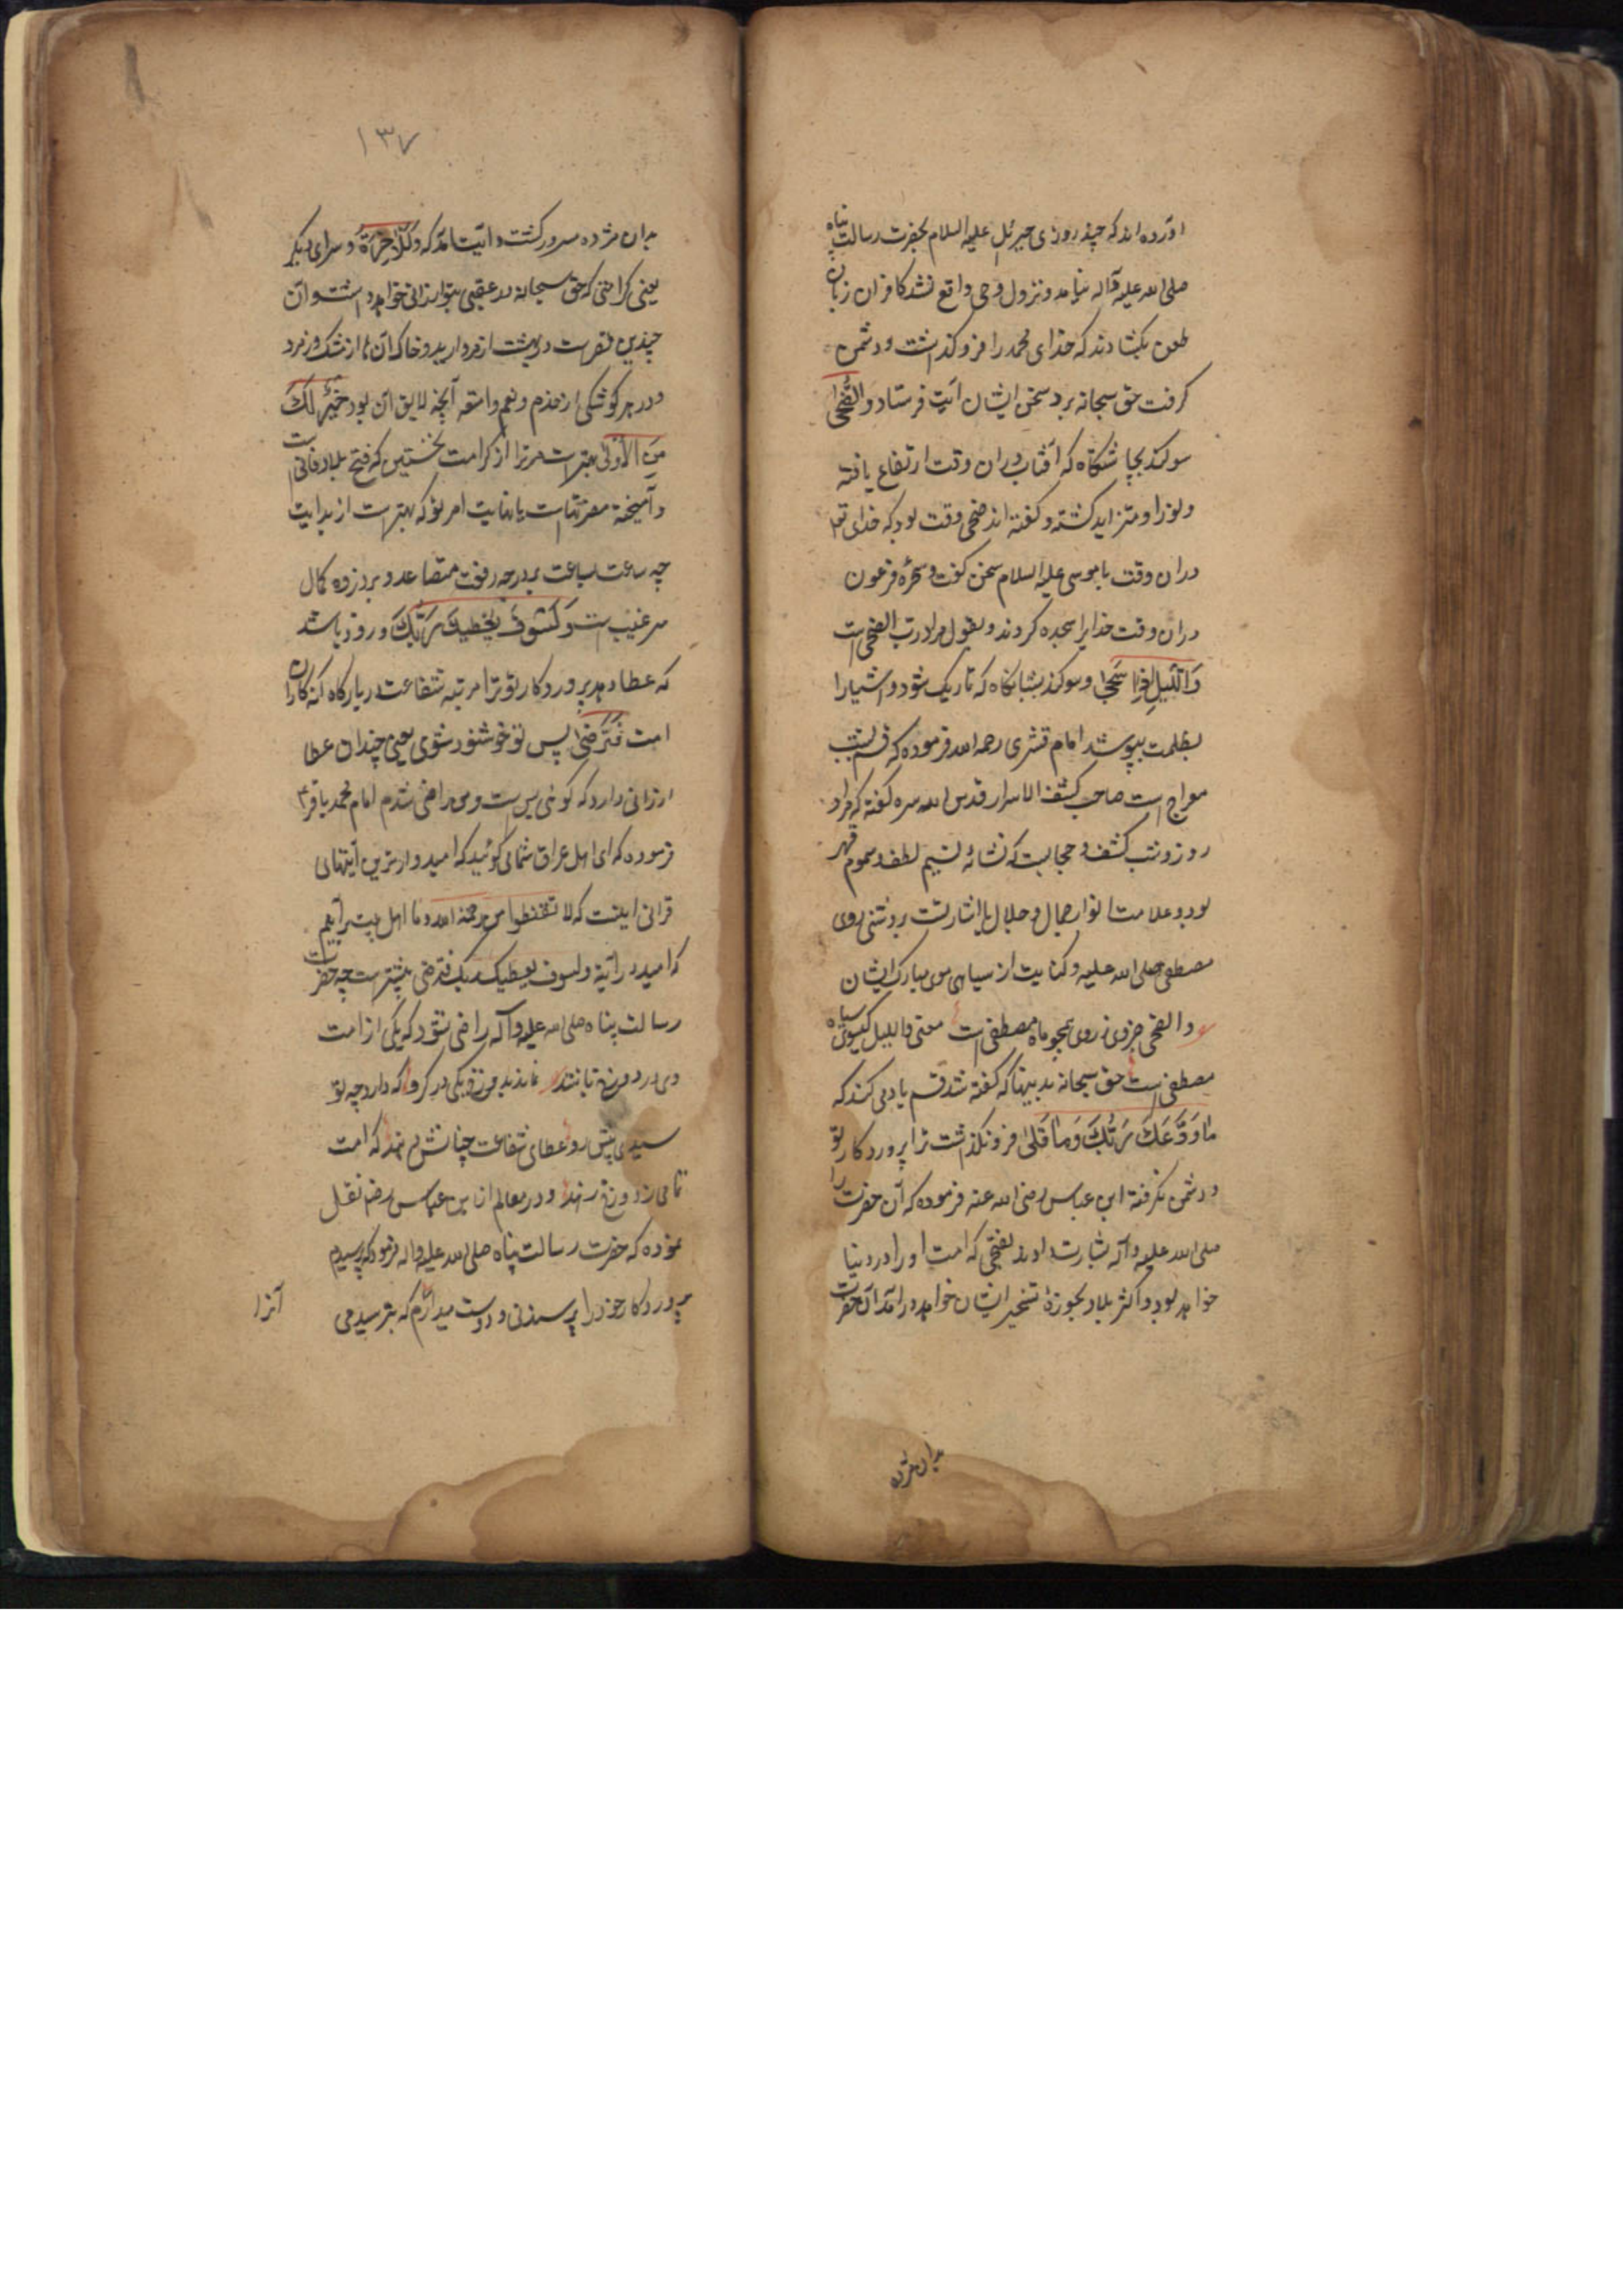 آورده اند که چند روزی جبرئیل علیه السلام بحضرت رسالت پناه
صلی الله علیه وآله نیامد و نزول وحی واقع نشد کافران زبان
طعن بکشادند که خدای محمد را فرو کذاشت و دشمن
کرفت حق سبحانه برد سخن ایشان آیت فرستاد وَالضُّحَىٰ
سوکند بچاشتکاه که آفتاب دران وقت ارتفاع یافته
و نور او متزاید کشته و کفته اند ضحی وقت بود که خدای تع
دران وقت با موسی علیه السلام سخن کفت و سحرهٔ فرعون
دران وقت خدایرا سجده کردند و بقول مراد رب الضحی است
وَاللَّيْلِ إِذَا سَجَىٰ و سوکند بشبانکاه که تاریک شود و اشیا را
بظلمت بپوشد امام قشری رحمه الله فرموده که قسم بشب
معراج است صاحب کشف الاسرار قدس الله سره کفته که مراد
روز و شب کشف و حجابست که نشانهٔ نسیم لطف و سموم قهر
بود و علامت انوار جمال و جلال یا اشارتست بروشنی روی
مصطفی صلی الله علیه و کنایت از سیاهی موی مبارک ایشان
والضحی رمزی ز روی همچو ماه مصطفی است معنی واللیل کیسوی سیاه
مصطفی است حق سبحانه بدینها که کفته شد قسم یاد می کند که
مَا وَدَّعَكَ رَبُّكَ وَمَا قَلَىٰ فرو نکذاشت ترا پروردکار تو
و دشمن نکرفته ابن عباس رضی الله عنه فرموده که آن حضرت را
صلی الله علیه وآله بشارت دادند بفتحی که امت او را در دنیا
خواهد بود و اکثر بلاد بحوزهٔ تسخیر ایشان خواهد درآمد آن حضرت
بدان مژده
١٣٧
بدان مژده مسرور کشت و آیت آمد که وَلَلْآخِرَةُ و سرای دیکر
یعنی کرامتی که حق سبحانه در عقبی بتو ارزانی خواهد داشت و آن
چندین قصر است در بهشت از مروارید و خاک آن از مشک و زمرد
و در هر کوشکی از خدم و نعم و امتعه آنچه لایق آن بود خَيْرٌ لَكَ
مِنَ الْأُولَىٰ بهتر است مر ترا از کرامت نخستین که فتح بلاد فانی است
و آمیخته مضرتهاست یا نهایت امر تو که بهتر است از بدایت
چه ساعت بساعت بر درجه رفعت متصاعد و بر ذروه کمال
مرغیب است وَلَسَوْفَ يُعْطِيكَ رَبُّكَ و زود باشد
که عطا دهد پروردکار تو ترا مرتبه شفاعت در بارکاه کنه کاران
امت فَتَرْضَىٰ پس تو خوشنود شوی یعنی چندان عطا
ارزانی دارد که کوئی بس است و من راضی شدم امام محمد باقر ع
فرموده که ای اهل عراق شما می کوئید که امیدوارترین آیتهای
قرانی اینست که لا تقنطوا من رحمة الله و ما اهل بیت برآنیم
که امید در آیة ولسوف یعطیک ربک فترضی بیشتر است چه حضرت
رسالت پناه صلی الله علیه وآله راضی نشود که یکی از امت
وی در دوزخ باشند نماند بدوزخ یکی در کرو که دارد چه تو
سیدی پیش رو عطای شفاعت چنانش دهند که امت
تمامی ز دوزخ رهند و در معالم از ابن عباس رض نقل
نموده که حضرت رسالت پناه صلی الله علیه واله فرمود که پرسیدم
پروردکار خود را پرسیدنی و دوست میدارم که نپرسیدمی
آنرا